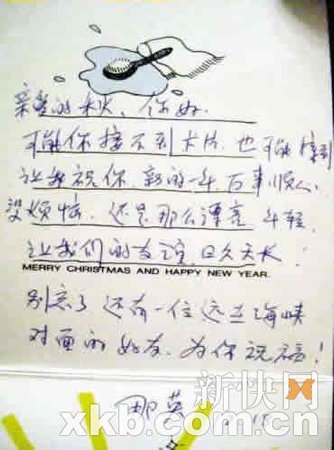 亲爱的秋，你好.
可能你接不到卡片，也可能接到
让我祝你 新的一年，万事顺心
没烦恼，还是那么漂亮，年轻.
让我们的友谊，日久天长！
MERRY CHRISTMAS AND HAPPY NEW YEAR.
别忘了 还有一位远在海峡
对面的好友，为你祝福！
那英
新快网
xkb.com.cn